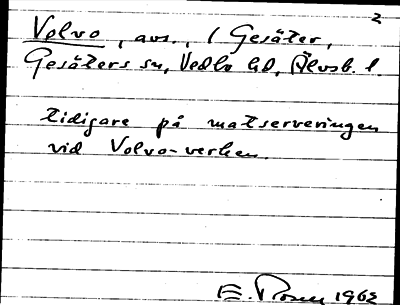 2
Volvo, avs., i Gesäter,
Gesäters sn, Vedbo hd, Älvsb. l.
tidigare på matserveringen
vid Volvo-verken.
E. 1962